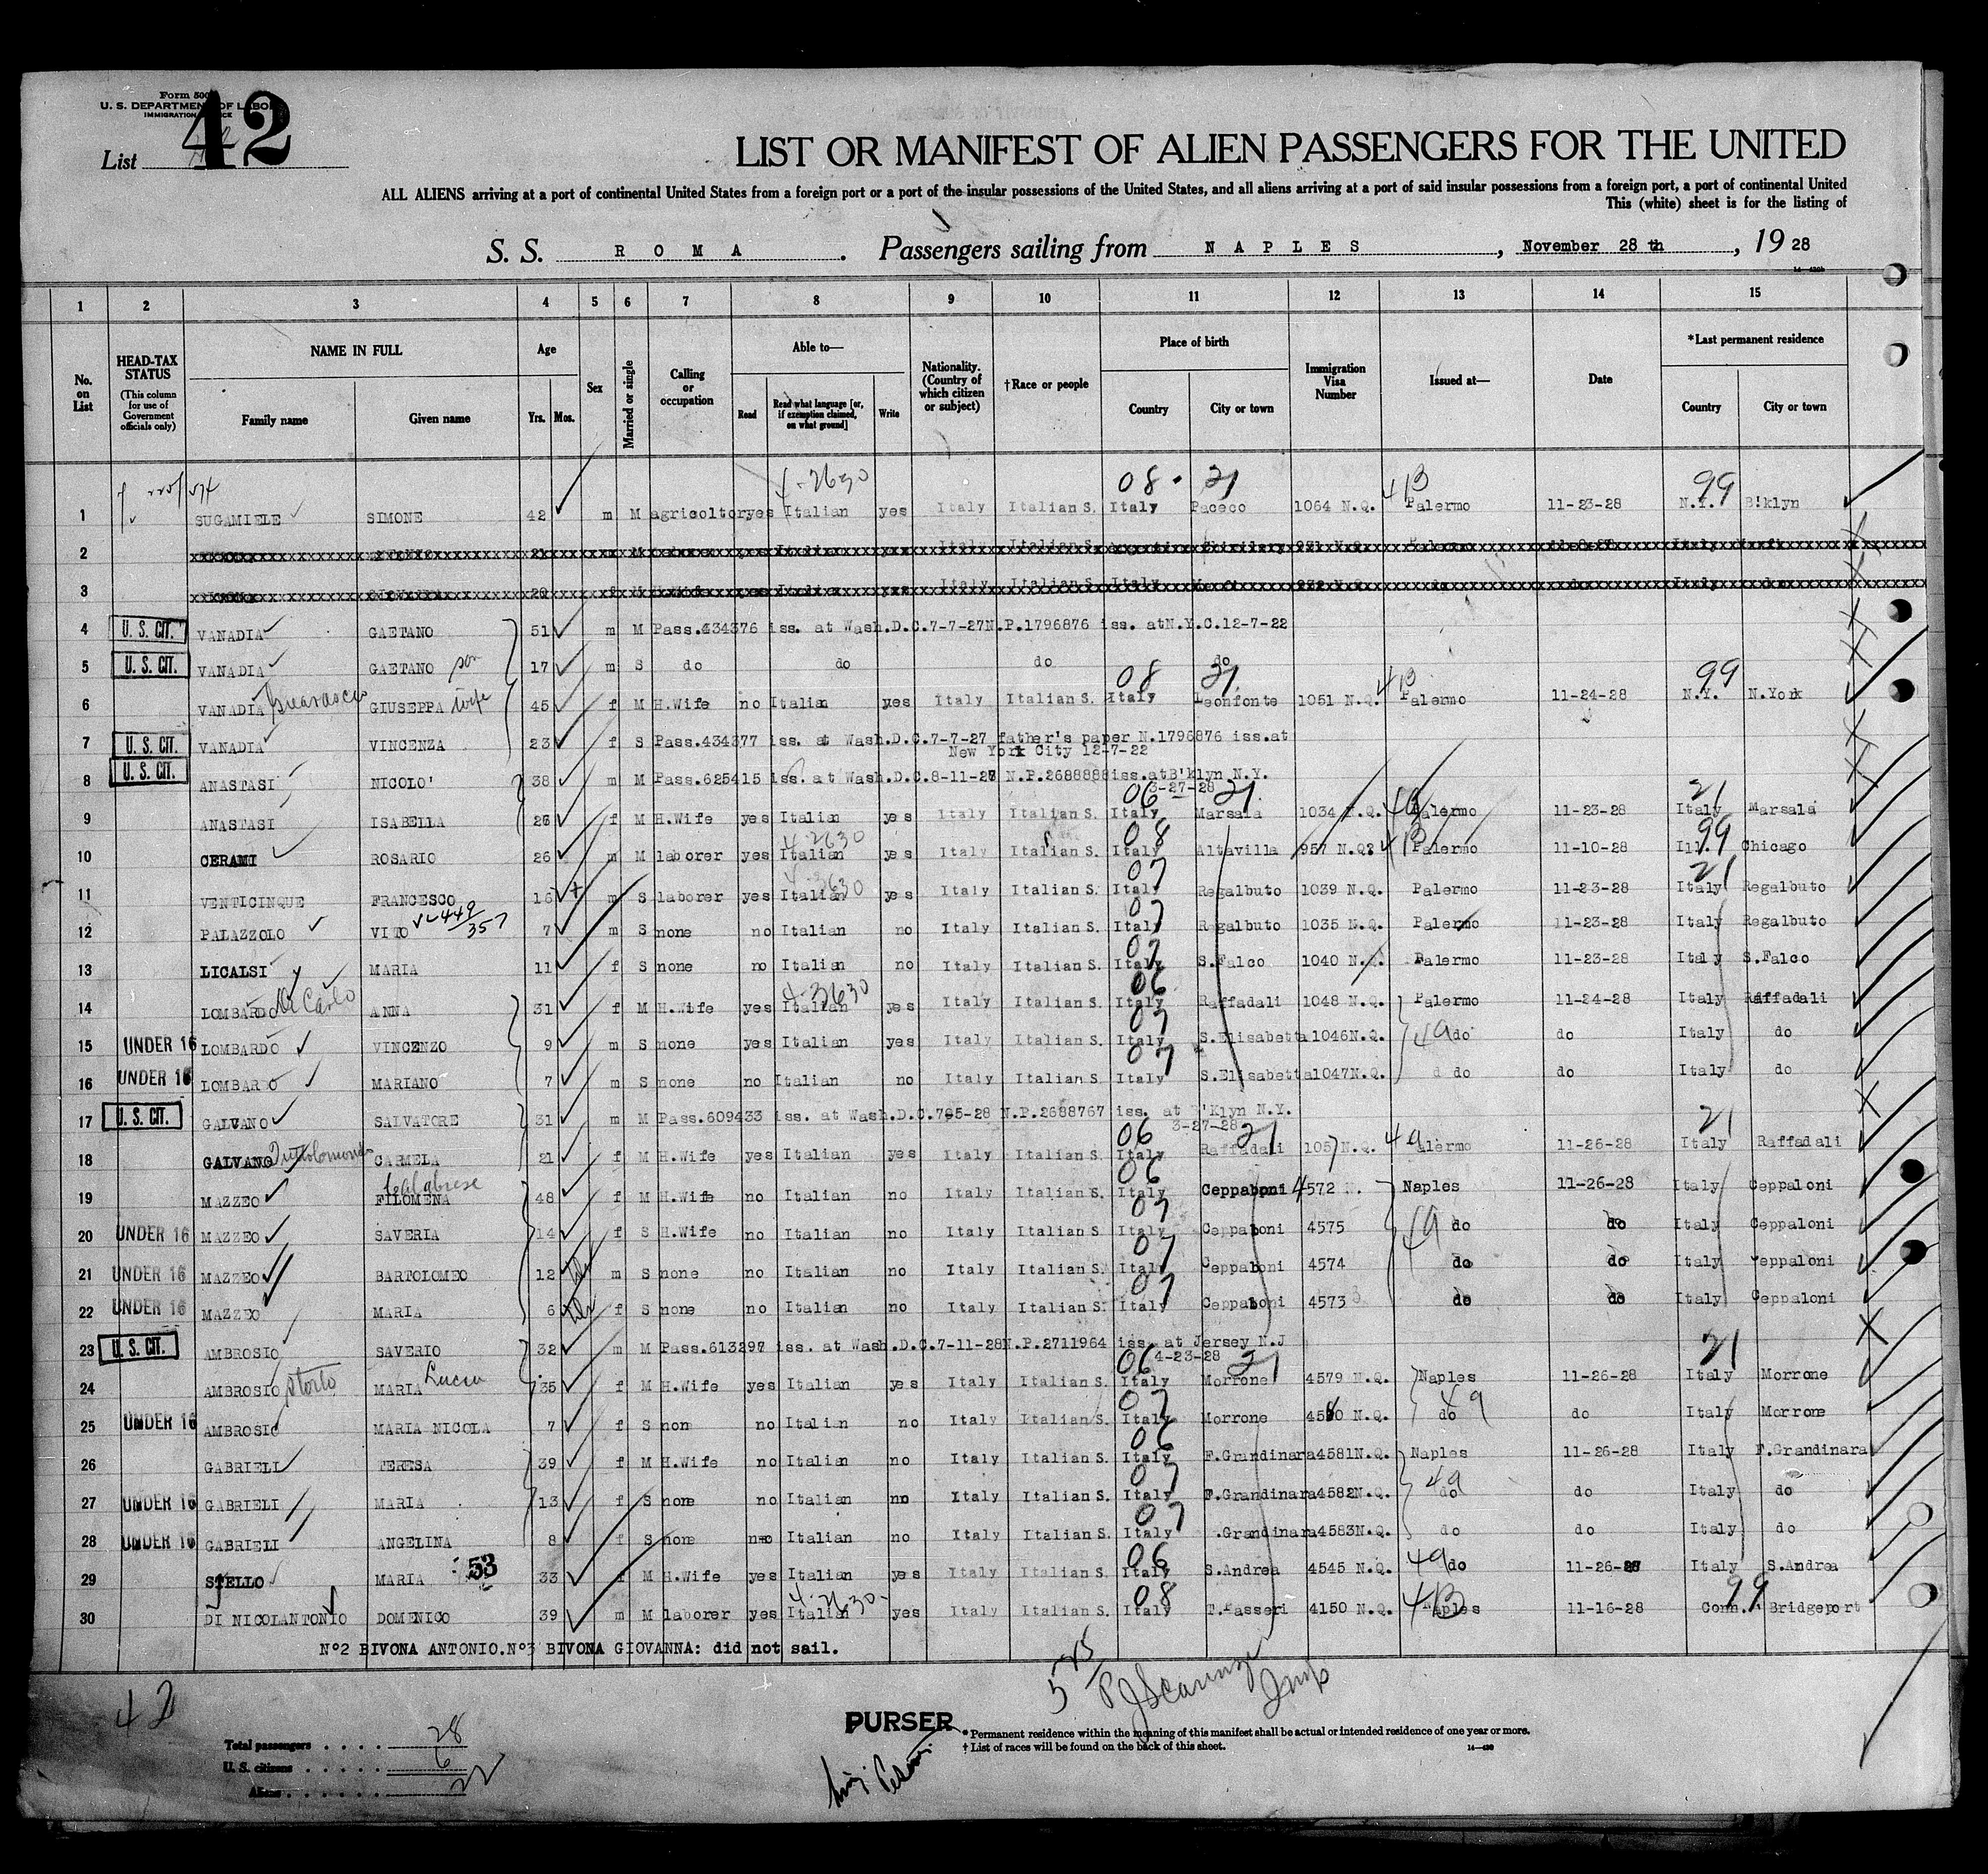 Form 500
U. S. DEPARTMENT OF LABOR
IMMIGRATION SERVICE
List 42
LIST OR MANIFEST OF ALIEN PASSENGERS FOR THE UNITED
ALL ALIENS arriving at a port of continental United States from a foreign port or a port of the insular possessions of the United States, and all aliens arriving at a port of said insular possessions from a foreign port, a port of continental United
This (white) sheet is for the listing of
S. S. ROMA. Passengers sailing from NAPLES, November 28 th, 19 28
1 2 3 4 5 6 7 8 9 10 11 12 13 14 15
No. on List
HEAD-TAX STATUS (This column for use of Government officials only)
NAME IN FULL Family name Given name
Age Yrs. Mos.
Sex
Married or single
Calling or occupation
Able to— Read Read what language [or, if exemption claimed, on what ground] Write
Nationality. (Country of which citizen or subject)
†Race or people
Place of birth Country City or town
Immigration Visa Number
Issued at—
Date
*Last permanent residence Country City or town
4-2630 08 21 413 99
1 SUGAMIELE SIMONE 42 m M agricoltor yes Italian yes Italy Italian S. Italy Paceco 1064 N.Q. Palermo 11-23-28 N.Y. B'klyn
2
3
4 U. S. CIT. VANADIA GAETANO 51 m M Pass.434376 iss. at Wash.D.C.7-7-27N.P.1796876 iss. atN.Y.C.12-7-22
5 U. S. CIT. VANADIA GAETANO son 17 m S do do do do
08 21 413 99
6 VANADIA Guarascio GIUSEPPA wife 45 f M H.Wife no Italian yes Italy Italian S. Italy Leonfonte 1051 N.Q. Palermo 11-24-28 N.Y. N.York
7 U. S. CIT. VANADIA VINCENZA 23 f S Pass.434377 iss. at Wash.D.C.7-7-27 father's paper N.1796876 iss.at
New York City 12-7-22
8 U. S. CIT. ANASTASI NICOLO' 38 m M Pass.625415 iss. at Wash.D.C.8-11-28 N.P.2688888iss.atB'klyn N.Y.
3-27-28
06 21 21
9 ANASTASI ISABELLA 26 f M H.Wife yes Italian yes Italy Italian S. Italy Marsala 1034 N.Q. Palermo 11-23-28 Italy Marsala
4-2630 08 413 99
10 CERAMI ROSARIO 26 m M laborer yes Italian yes Italy Italian S. Italy Altavilla 957 N.Q. Palermo 11-10-28 Ill. Chicago
4-3630 07 21
11 VENTICINQUE FRANCESCO 16 m S laborer yes Italian yes Italy Italian S. Italy Regalbuto 1039 N.Q. Palermo 11-23-28 Italy Regalbuto
449/357 07
12 PALAZZOLO VITO 7 m S none no Italian no Italy Italian S. Italy Regalbuto 1035 N.Q. Palermo 11-23-28 Italy Regalbuto
07
13 LICALSI MARIA 11 f S none no Italian no Italy Italian S. Italy S.Falco 1040 N.Q. Palermo 11-23-28 Italy S.Falco
4-3630 06
14 LOMBARDO Di Carlo ANNA 31 f M H.Wife yes Italian yes Italy Italian S. Italy Raffadali 1048 N.Q. Palermo 11-24-28 Italy Raffadali
07
15 UNDER 16 LOMBARDO VINCENZO 9 m S none yes Italian yes Italy Italian S. Italy S.Elisabetta 1046N.Q. do do Italy do
07
16 UNDER 16 LOMBARDO MARIANO 7 m S none no Italian no Italy Italian S. Italy S.Elisabetta 1047N.Q. do do Italy do
17 U. S. CIT. GALVANO SALVATORE 31 m M Pass.609433 iss. at Wash.D.C.705-28 N.P.2688767 iss. at B'Klyn N.Y.
3-27-28
06 21 49 21
18 GALVANO Tuttolomondo CARMELA 21 f M H.Wife yes Italian yes Italy Italian S. Italy Raffadali 1057 N.Q. Palermo 11-26-28 Italy Raffadali
Calabrese 06
19 MAZZEO FILOMENA 48 f M H.Wife no Italian no Italy Italian S. Italy Ceppaloni 4572 N. Naples 11-26-28 Italy Ceppaloni
07 49
20 UNDER 16 MAZZEO SAVERIA 14 f S H.Wife no Italian no Italy Italian S. Italy Ceppaloni 4575 do do Italy Ceppaloni
07
21 UNDER 16 MAZZEO BARTOLOMEO 12 m S none no Italian no Italy Italian S. Italy Ceppaloni 4574 do do Italy Ceppaloni
07
22 UNDER 16 MAZZEO MARIA 6 f S none no Italian no Italy Italian S. Italy Ceppaloni 4573 do do Italy Ceppaloni
23 U. S. CIT. AMBROSIO SAVERIO 32 m M Pass.613297 iss. at Wash.D.C.7-11-28N.P.2711964 iss. at Jersey N.J
4-23-28
06 21 21
24 AMBROSIO Storto MARIA Lucia 35 f M H.Wife yes Italian yes Italy Italian S. Italy Morrone 4579 N.Q. Naples 11-26-28 Italy Morrone
07 49
25 UNDER 16 AMBROSIO MARIA NICOLA 7 f S non no Italian no Italy Italian S. Italy Morrone 4580 N.Q. do do Italy Morrone
06
26 GABRIELI TERESA 39 f M H.Wife no Italian no Italy Italian S. Italy F.Grandinara 4581N.Q. Naples 11-26-28 Italy F.Grandinara
07 49
27 UNDER 16 GABRIELI MARIA 13 f S none no Italian no Italy Italian S. Italy F.Grandinara 4582N.Q. do do Italy do
07
28 UNDER 16 GABRIELI ANGELINA 8 f S none no Italian no Italy Italian S. Italy .Grandinara 4583N.Q. do do Italy do
53 06 49
29 STELLO MARIA 33 f M H.Wife yes Italian yes Italy Italian S. Italy S.Andrea 4545 N.Q. do 11-26-28 Italy S.Andrea
4-2630 08 413 99
30 DI NICOLANTONIO DOMENICO 39 m M laborer yes Italian yes Italy Italian S. Italy T.Passeri 4150 N.Q. Naples 11-16-28 Conn. Bridgeport
Nº2 BIVONA ANTONIO.Nº3 BIVONA GIOVANNA: did not sail.
42
PURSER
* Permanent residence within the meaning of this manifest shall be actual or intended residence of one year or more.
† List of races will be found on the back of this sheet.
Total passengers . . . . 28
U. S. citizens . . . . . 6
Aliens . . . . . . 22